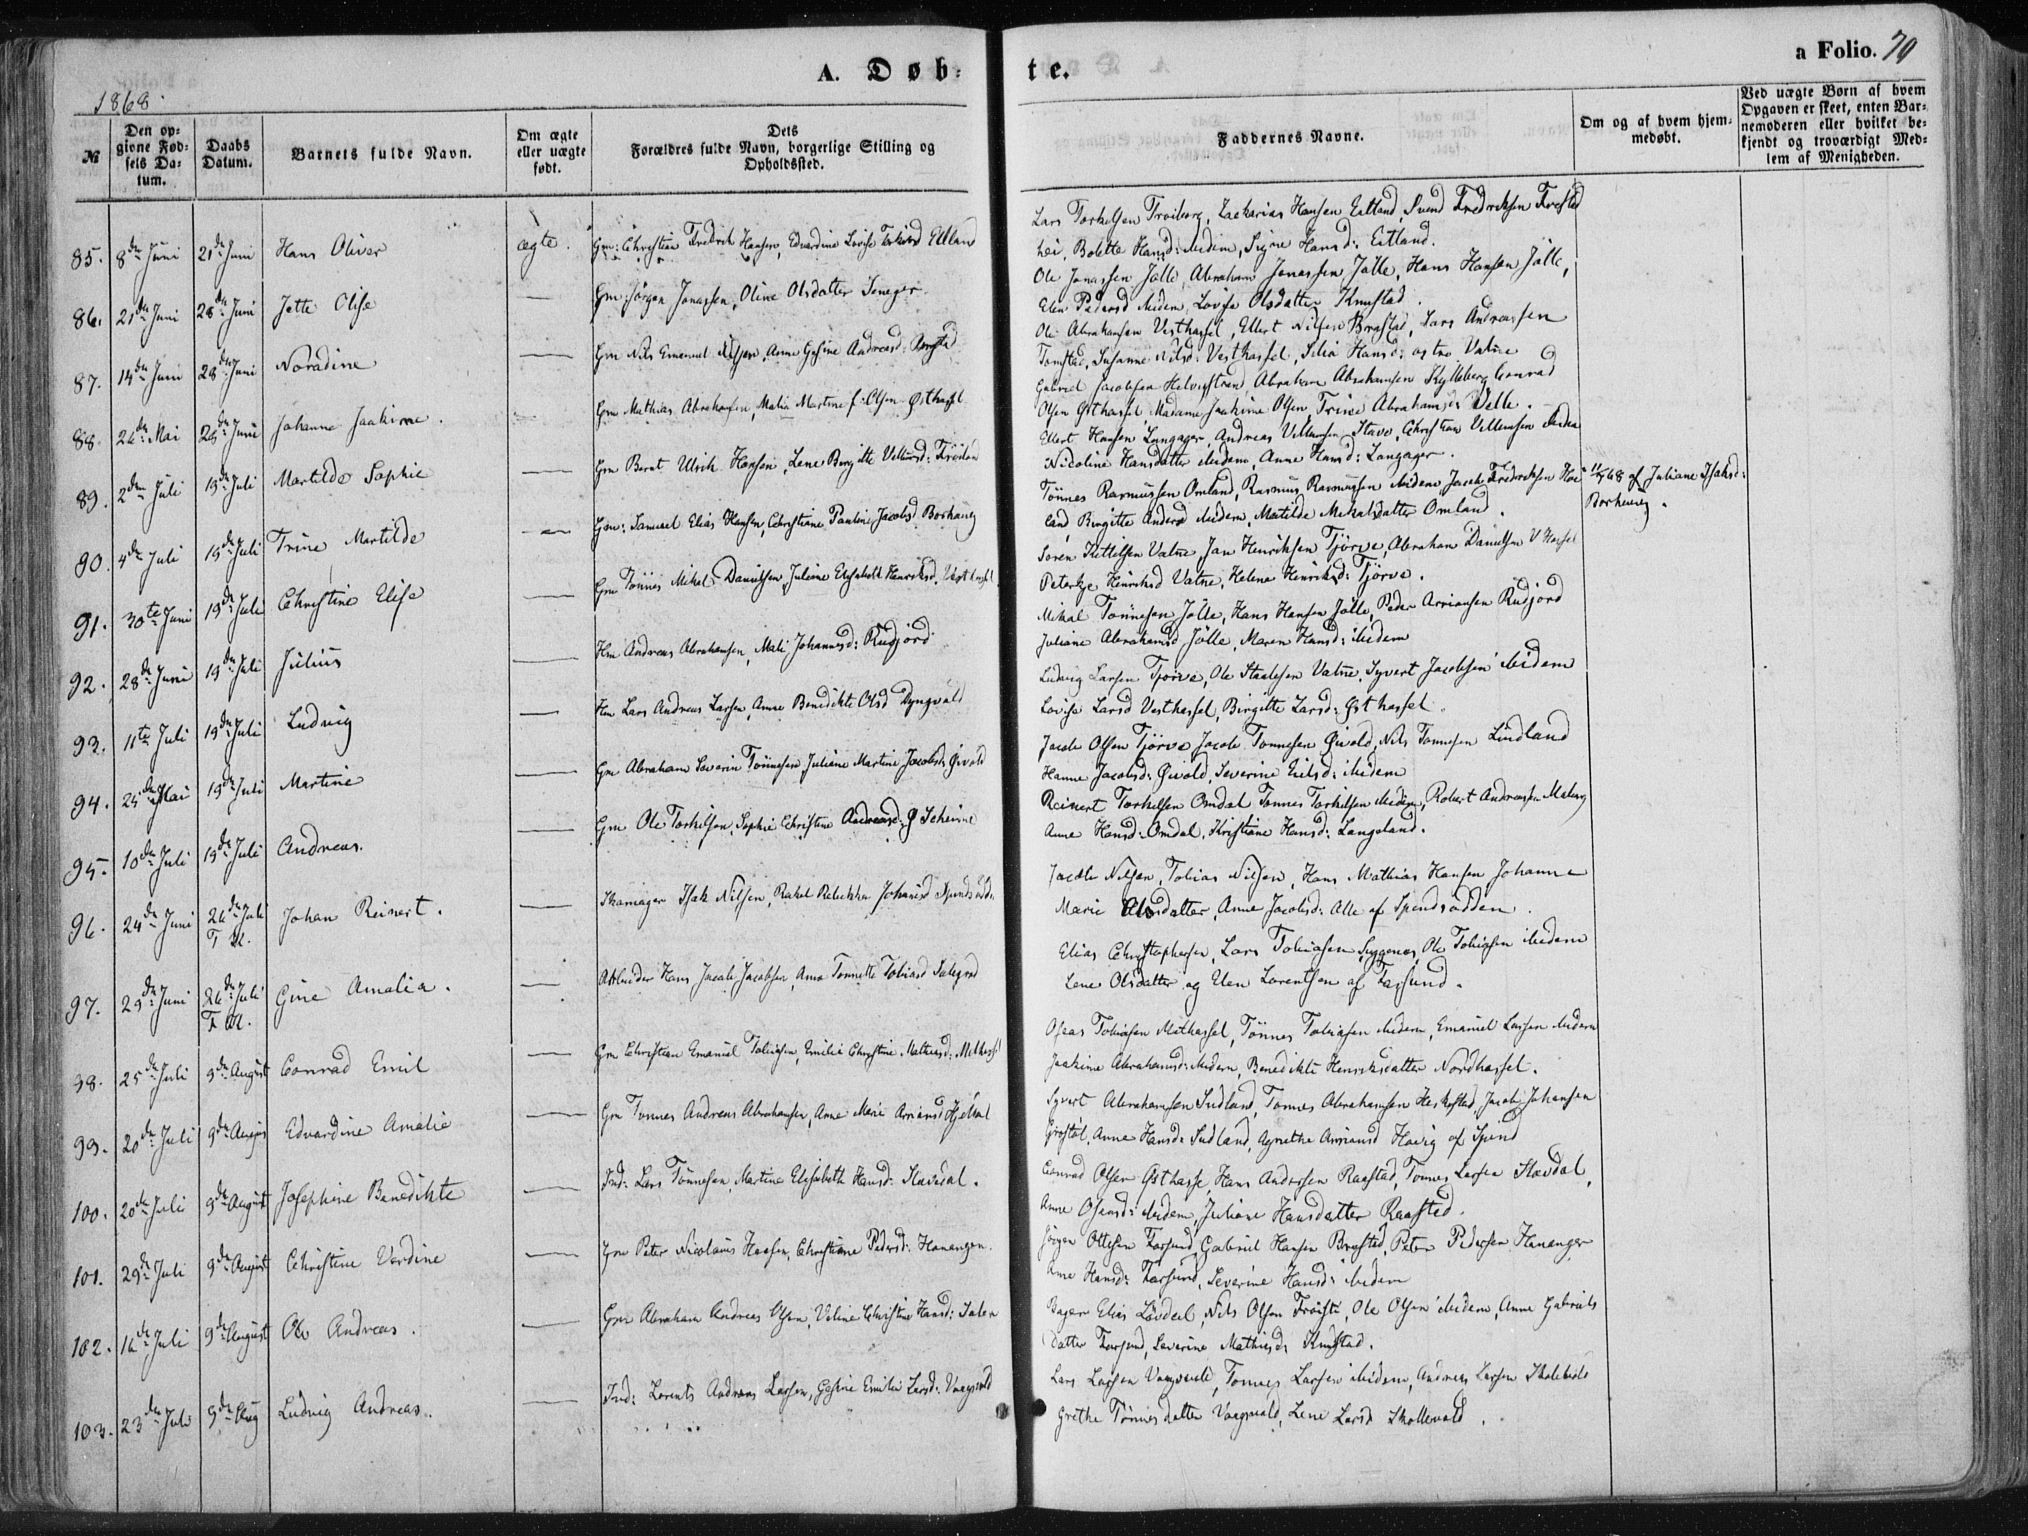 A. Døb: te.
a Folio. 70
1868.
№ | Den opgivne Fødsels Datum. | Daabs Datum. | Barnets fulde Navn. | Om ægte eller uægte født. | Dets Forældres fulde Navn, borgerlige Stilling og Opholdssted. | Faddernes Navne. | Om og af hvem hjemmedøbt. | Ved uægte Børn af hvem Opgaven er skeet, enten Barnemoderen eller hvilket bekjendt og troværdigt Medlem af Menigheden.
85. 8de Juni 21de Juni Hans Oliver ægte. Gm: Christian Fredrik Hansen, Edvardine Lovise Eitland
Lars Torkelsen Troiborg, Zacharias Hansen Eitland, Svend Fredriksen
Bolette Hansd: ibidem, Signe Hansd: Eitland.
86. 21de Juni 28de Juni Jette Olise — Gm Jørgen Jonassen, Oline Olsdatter
Ole Jonassen Jølle, Abraham Jonassen Jølle, Hans Hansen Jølle,
Elen Pedersd ibidem, Lovise Olsdatter Knustad.
87. 14de Juni 28de Juni Noradine — Gm Nils Emanuel Nilsen, Anne Gesine Andreasd:
Ole Abrahamsen Vesthassel, Ellert Nilsen Brastad, Lars Andreassen
Tomstad, Susanne Nilsd: Vesthassel, Silia Hansd: østre Vatne
88. 26de Mai 28de Juni Johanne Joakime. — Gm Mathias Abrahamsen, Malia Martine f: Olsen Østhassel
Gabriel Jacobsen Helvigstrand, Abraham Abrahamsen Kylleberg, Conrad
Olsen Østhassel, Madame Joakime Olsen, Trine Abrahamsd: Velle.
89. 2den Juli 19de Juli Martilde Sophie — Gm Bernt Ulrik Hansen, Lene Birgitte Villumsd:
Ellert Hansen Langager, Andreas Villumsen Stave, Christian Villumsen ibidem
Nicoline Hansdatter ibidem, Anne Hansd: Langager.
90. 4de Juli 19de Juli Trine Martilde — Gm: Samuel Elias Hansen, Christiane Pauline Jacobsd Borhaug
Tønnes Rasmussen Omland, Rasmus Rasmussen ibidem, Jacob Fredriksen
land Birgitte Andersd ibidem, Martilde Mikalsdatter Omland.
af Juliane Isaksd:
Borhaug.
91. 30te Juni 19de Juli Christine Elise — Gm Tønnes Mikal Danielsen, Juliane Elisabeth Henriksd, Vesthassel
Søren Kittelsen Vatne, Jan Henriksen Tjørve, Abraham Danielsen V Hassel
Henriksd Vatne, Helene Henriksd: Tjørve.
92. 28de Juni 19de Juli Julius — Hm Andreas Abrahamsen, Mali Johannesd: Rudjord
Mikal Tønnesen Jølle, Hans Hansen Jølle, Peder Arriansen Rudjord
Juliane Abrahamsd Jølle, Maren Hansd: ibidem
93. 11te Juli 19de Juli Ludvig — Hm Lars Andreas Larsen, Anne Benedikte Olsd Dyngvold
Ludvig Larsen Tjørve, Ole Staalesen Vatne, Syvert Jacobsen ibidem
Lovise Larsd Vesthassel, Birgitte Larsd: Østhassel.
94. 25de Mai 19de Juli Martine — Gm Abraham Severin Tønnesen, Juliane Martine Jacobsd: Øivold
Jacob Olsen Tjørve, Jacob Tønnesen Øivold, Nils Tønnesen Lindland
Hanne Jacobsd: Øivold, Severine Eilsd: ibidem
95. 10de Juli 19de Juli Andreas. — Gm Ole Torkilsen, Sophie Christine Andreasd:
Reinert Torkilsen Omdal, Tønnes Torkilsen ibidem, Robert Andreassen Maberg
Anne Hansd: Omdal, Kristiane Hansd: Langeland.
96. 24de Juni 26de Juli F K. Johan Reinert. — Skomager Isak Nilsen, Rakel Rebekka Johannesd
Jacob Nilsen, Tobias Nilsen, Hans Mathias Hansen, Johanne
Marie Olsdatter, Anne Jacobsd: Alle af Spindsodden.
97. 29de Juni 26de Juli F K. Gine Amalia. — Hans Jacob Jacobsen, Anne Tonnette Tobiasd
Elias Christophersen, Lars Tobiasen, Ole Tobiasen ibidem
Lene Olsdatter og Elen Lorentsen af Farsund.
98. 25de Juli 9de August Conrad Emil — Gm Christian Emanuel Tobiasen, Emilie Christine Mathiasd: Midthassel
Oseas Tobiasen Mithassel, Tønnes Tobiasen ibidem, Emanuel Larsen ibidem
Joakime Abrahamsd: ibidem, Benedikte Henriksdatter Nordhassel.
99. 20de Juli 9de August Edvardine Amalie — Gm Tønnes Andreas Abrahamsen, Anne Marie Arriansd
Syvert Abrahamsen Sudland, Tønnes Abrahamsen, Jacob Johansen
Anne Hansd: Sudland, Agnethe Arriansd Havig af Spind
100. 20de Juli 9de August Josephine Benedikte — Ind: Lars Tønnesen, Martine Elisabeth Hansd: Stavdal.
Conrad Olsen Østhassel, Hans Andersen Raastad, Tønnes Larsen Stavdal,
Anne Olsensd: ibidem, Juliane Hansdatter Raasted.
101. 29de Juli 9de August Christine Verdine — Gm Peter Nicolaus Hansen, Christiane Pedersd: Hananger.
Jørgen Ottesen Farsund, Gabriel Hansen Brastad, Peter Pedersen Hananger
Anne Hansd: Farsund, Severine Hansd: ibidem
102. 16de Juli 9de August Ole Andreas. — Gm Abraham Andreas Olsen, Veline Christine Hansd:
Bager Elias Løvdal, Nils Olsen, Ole Olsen ibidem, Anne Gabriels
datter Farsund, Severine Mathiasd: Knustad.
103. 23den Juli 9de Aug Ludvig Andreas. — Ind: Lorents Andreas Larsen, Gesine Emilie Larsd: Vaagsvold
Lars Larsen Vaagsvold, Tønnes Larsen ibidem, Andreas Larsen
Grethe Tønnesdatter Vaagsvold, Lene Larsd Skollevold.